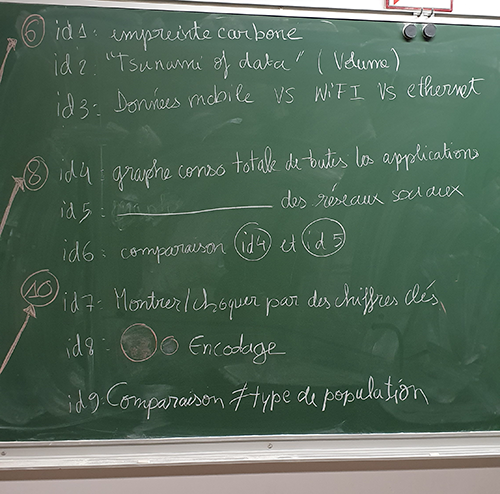 6 id1: empreinte carbone
id2: "Tsunami of data" (Volume)
id3: Données mobile VS WiFI VS ethernet
8 id4: graphe conso totale de toutes les applications
id5: ——— des réseaux sociaux
id6: comparaison id4 et id5
10 id7: Montrer/choquer par des chiffres clés
id8: Encodage
id9: Comparaison ≠ type de population